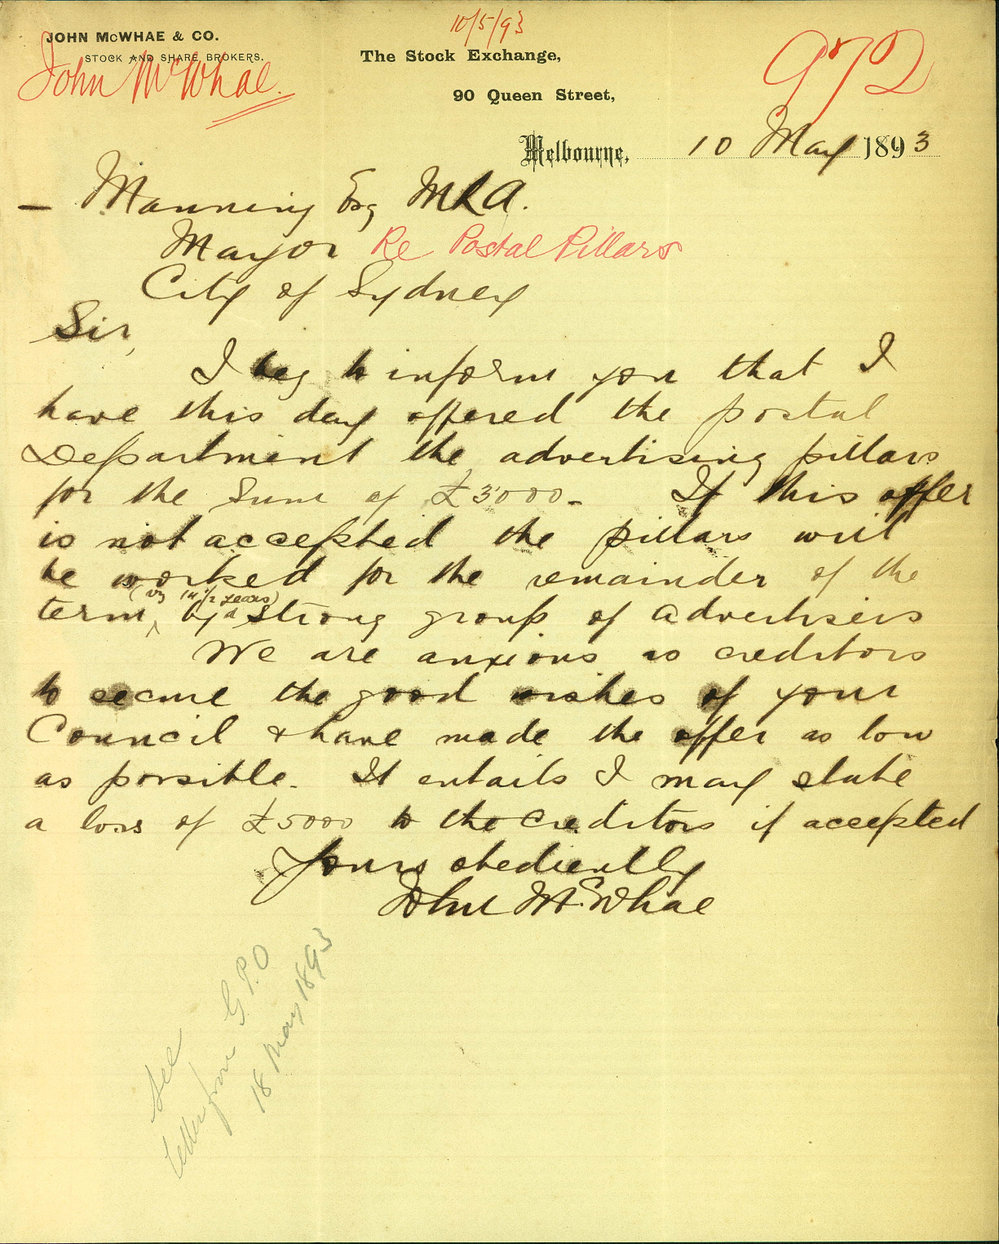 10/5/93
JOHN McWHAE & CO.
STOCK AND SHARE BROKERS.
The Stock Exchange,
John McWhae.
972
90 Queen Street,
Melbourne, 10 May 1893
— Manning Esq MLA.
Mayor Re Postal Pillars
City of Sydney
Sir,
I beg to inform you that I
have this day offered the postal
Department the advertising pillars
for the sum of £3000 - If this offer
is not accepted the pillars will
be worked for the remainder of the
(viz 14 1/2 years)
term by a strong group of advertisers
We are anxious as creditors
to secure the good wishes of your
Council & have made the offer as low
as possible. It entails I may state
a loss of £5000 to the creditors if accepted
Yours obediently
John McWhae
See
letter from G.P.O
18 May 1893